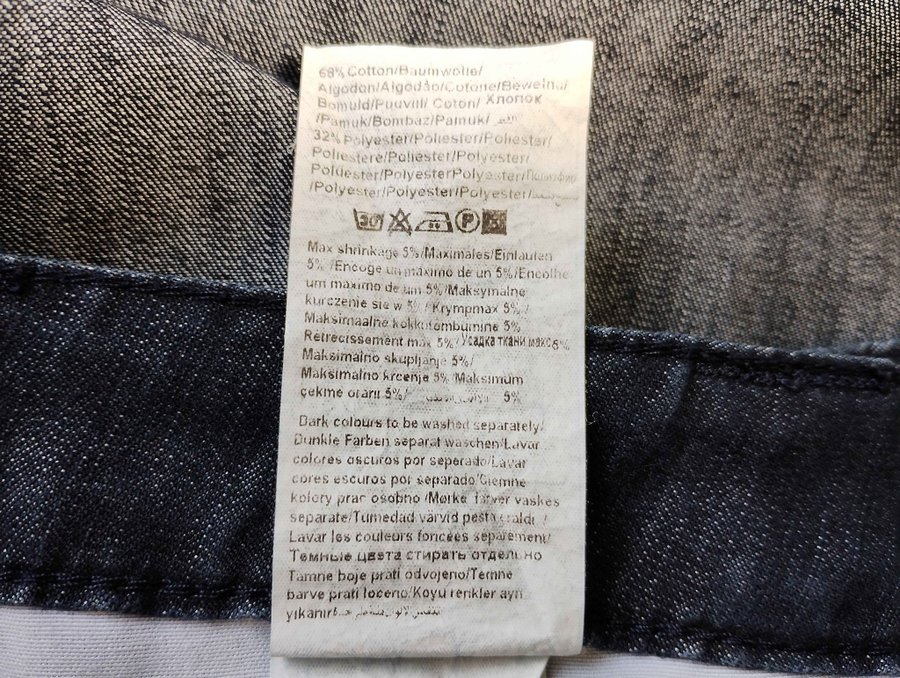 68% Cotton/Baumwolle/
Algodon/Algodão/Cotone/Bawełna/
Bomuld/Puuvill/ Coton/ Хлопок
/Pamuk/Bombaz/Pamuk/
32% Polyester/Poliester/Poliester/
Poliestere/Poliester/Polyester/
Polüester/PolyesterPolyester/
/Polyester/Polyester/Polyester/
30 P
Max shrinkage 5%/Maximales/Einlaufen
5% /Encoge un maximo de un 5%/Encolhe
um maximo de um 5%/Maksymalne
kurczenie sie w 5% /Krympmax 5% /
Maksimaalne kokkutombumine 5%
Retrecissement max 5%/Усадка ткани макс5%
Maksimalno skupljanje 5%/
Maksimalno krcenje 5%/Maksimum
çekme oranı 5%/ 5%
Dark colours to be washed separately/
Dunkle Farben separat waschen/Lavar
colores oscuros por seperado/Lavar
cores escuros por separado/Ciemne
kolory prac osobno /Mørke farver vaskes
separate/Tumedad värvid pesta eraldi /
Lavar les couleurs foncées séparement/
Темные цвета стирать отдельно
Tamne boje prati odvojeno/Temne
barve prati loceno/Koyu renkler ayrı
yıkanır